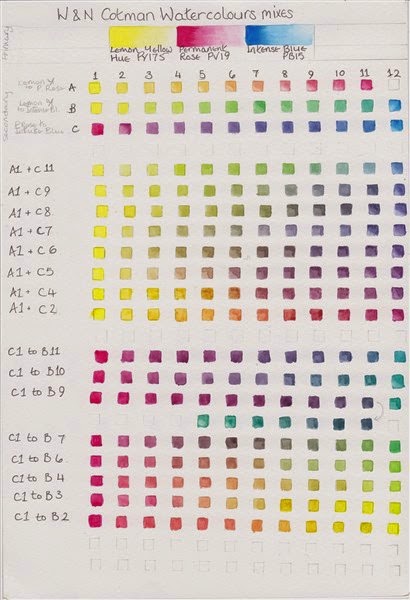 W&N Cotman Watercolours mixes
primary
Lemon Yellow Hue PY175
Permanent Rose PV19
Intense Blue PB15
secondary
1 2 3 4 5 6 7 8 9 10 11 12
Lemon Y to P. Rose A
Lemon Y to Intense Bl. B
P. Rose to Intense Blue C
A1 + C11
A1 + C9
A1 + C8
A1 + C7
A1 + C6
A1 + C5
A1 + C4
A1 + C2
C1 to B11
C1 to B10
C1 to B9
C1 to B7
C1 to B6
C1 to B4
C1 to B3
C1 to B2